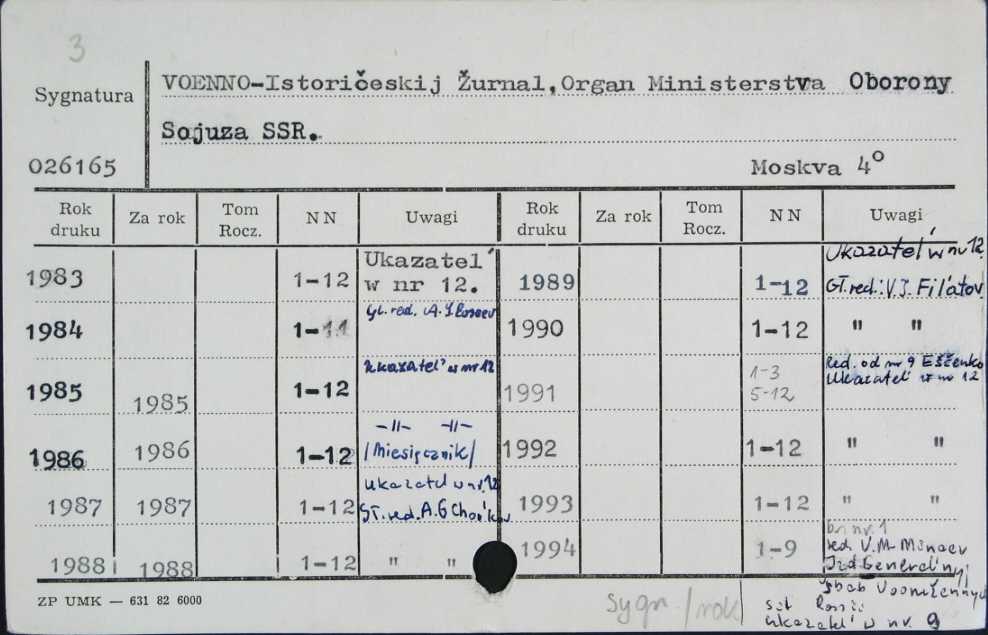 3
Sygnatura
VOENNO-Istoričeskij Žurnal,Organ Ministerstva Oborony
Sojuza SSR.
026165
Moskva 4°
Rok druku Za rok Tom Rocz. NN Uwagi Rok druku Za rok Tom Rocz. NN Uwagi
1983 1-12 Ukazatel' w nr 12. 1989 1-12 Ukazatel' w nr 12. Gł.red.: V.I. Filatov
1984 1-11 Gł. red. A. 1990 1-12 " "
1985 1985 1-12 Ukazatel' w nr 12 1991 1-3 5-12 Red. od nr 9 Eščenko Ukazatel' w nr 12
1986 1986 1-12 -||- -||- /miesięcznik/ 1992 1-12 " "
1987 1987 1-12 Ukazatel w nr. 12 Gł. red. A.G 1993 1-12 " "
1988 1988 1-12 " " 1994 1-9 nr. 1 red. V.M. Minaev Izd General'nyj
štab Vooružennych
ZP UMK — 631 82 6000
sygn /rok
sil
Ukazatel' w nr. 9